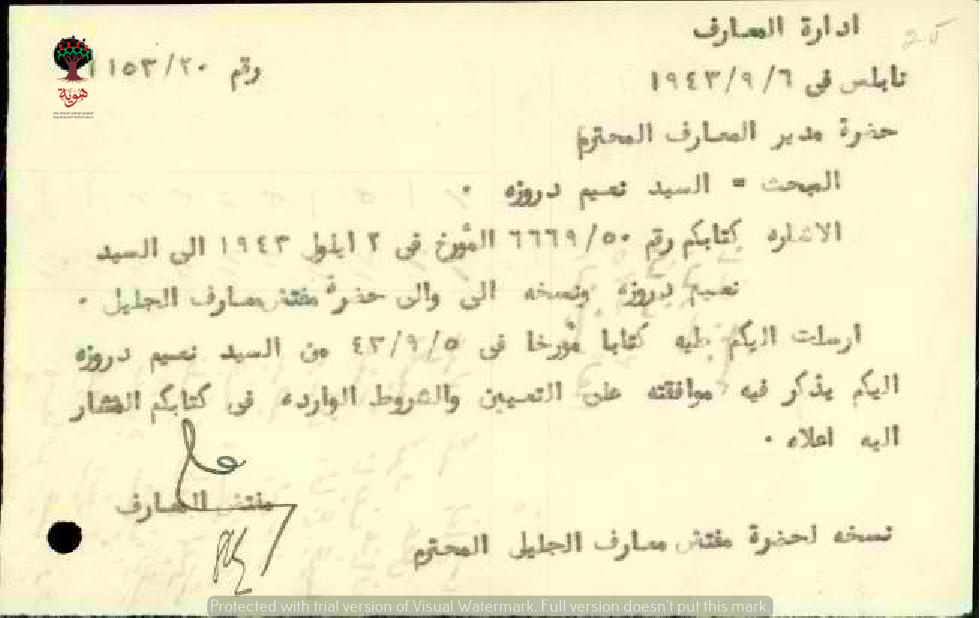 ادارة المعارف
25
نابلس فى ١٩٤٣/٩/٦
رقم ١١٥٣/٢٠
هوية
حضرة مدير المعارف المحترم
المبحث = السيد نعيم دروزه ٠
الاشاره كتابكم رقم ٦٦٦٩/٥٠ المؤرخ فى ٢ ايلول ١٩٤٣ الى السيد
نعيم دروزه ونسخه الى والى حضرة مفتش معارف الجليل ٠
ارسلت اليكم طيه كتابا مؤرخا فى ٤٣/٩/٥ من السيد نعيم دروزه
اليكم يذكر فيه موافقته على التعيين والشروط الوارده فى كتابكم المشار
اليه اعلاه ٠
مفتش المعارف
نسخه لحضرة مفتش معارف الجليل المحترم
Protected with trial version of Visual Watermark. Full version doesn't put this mark.